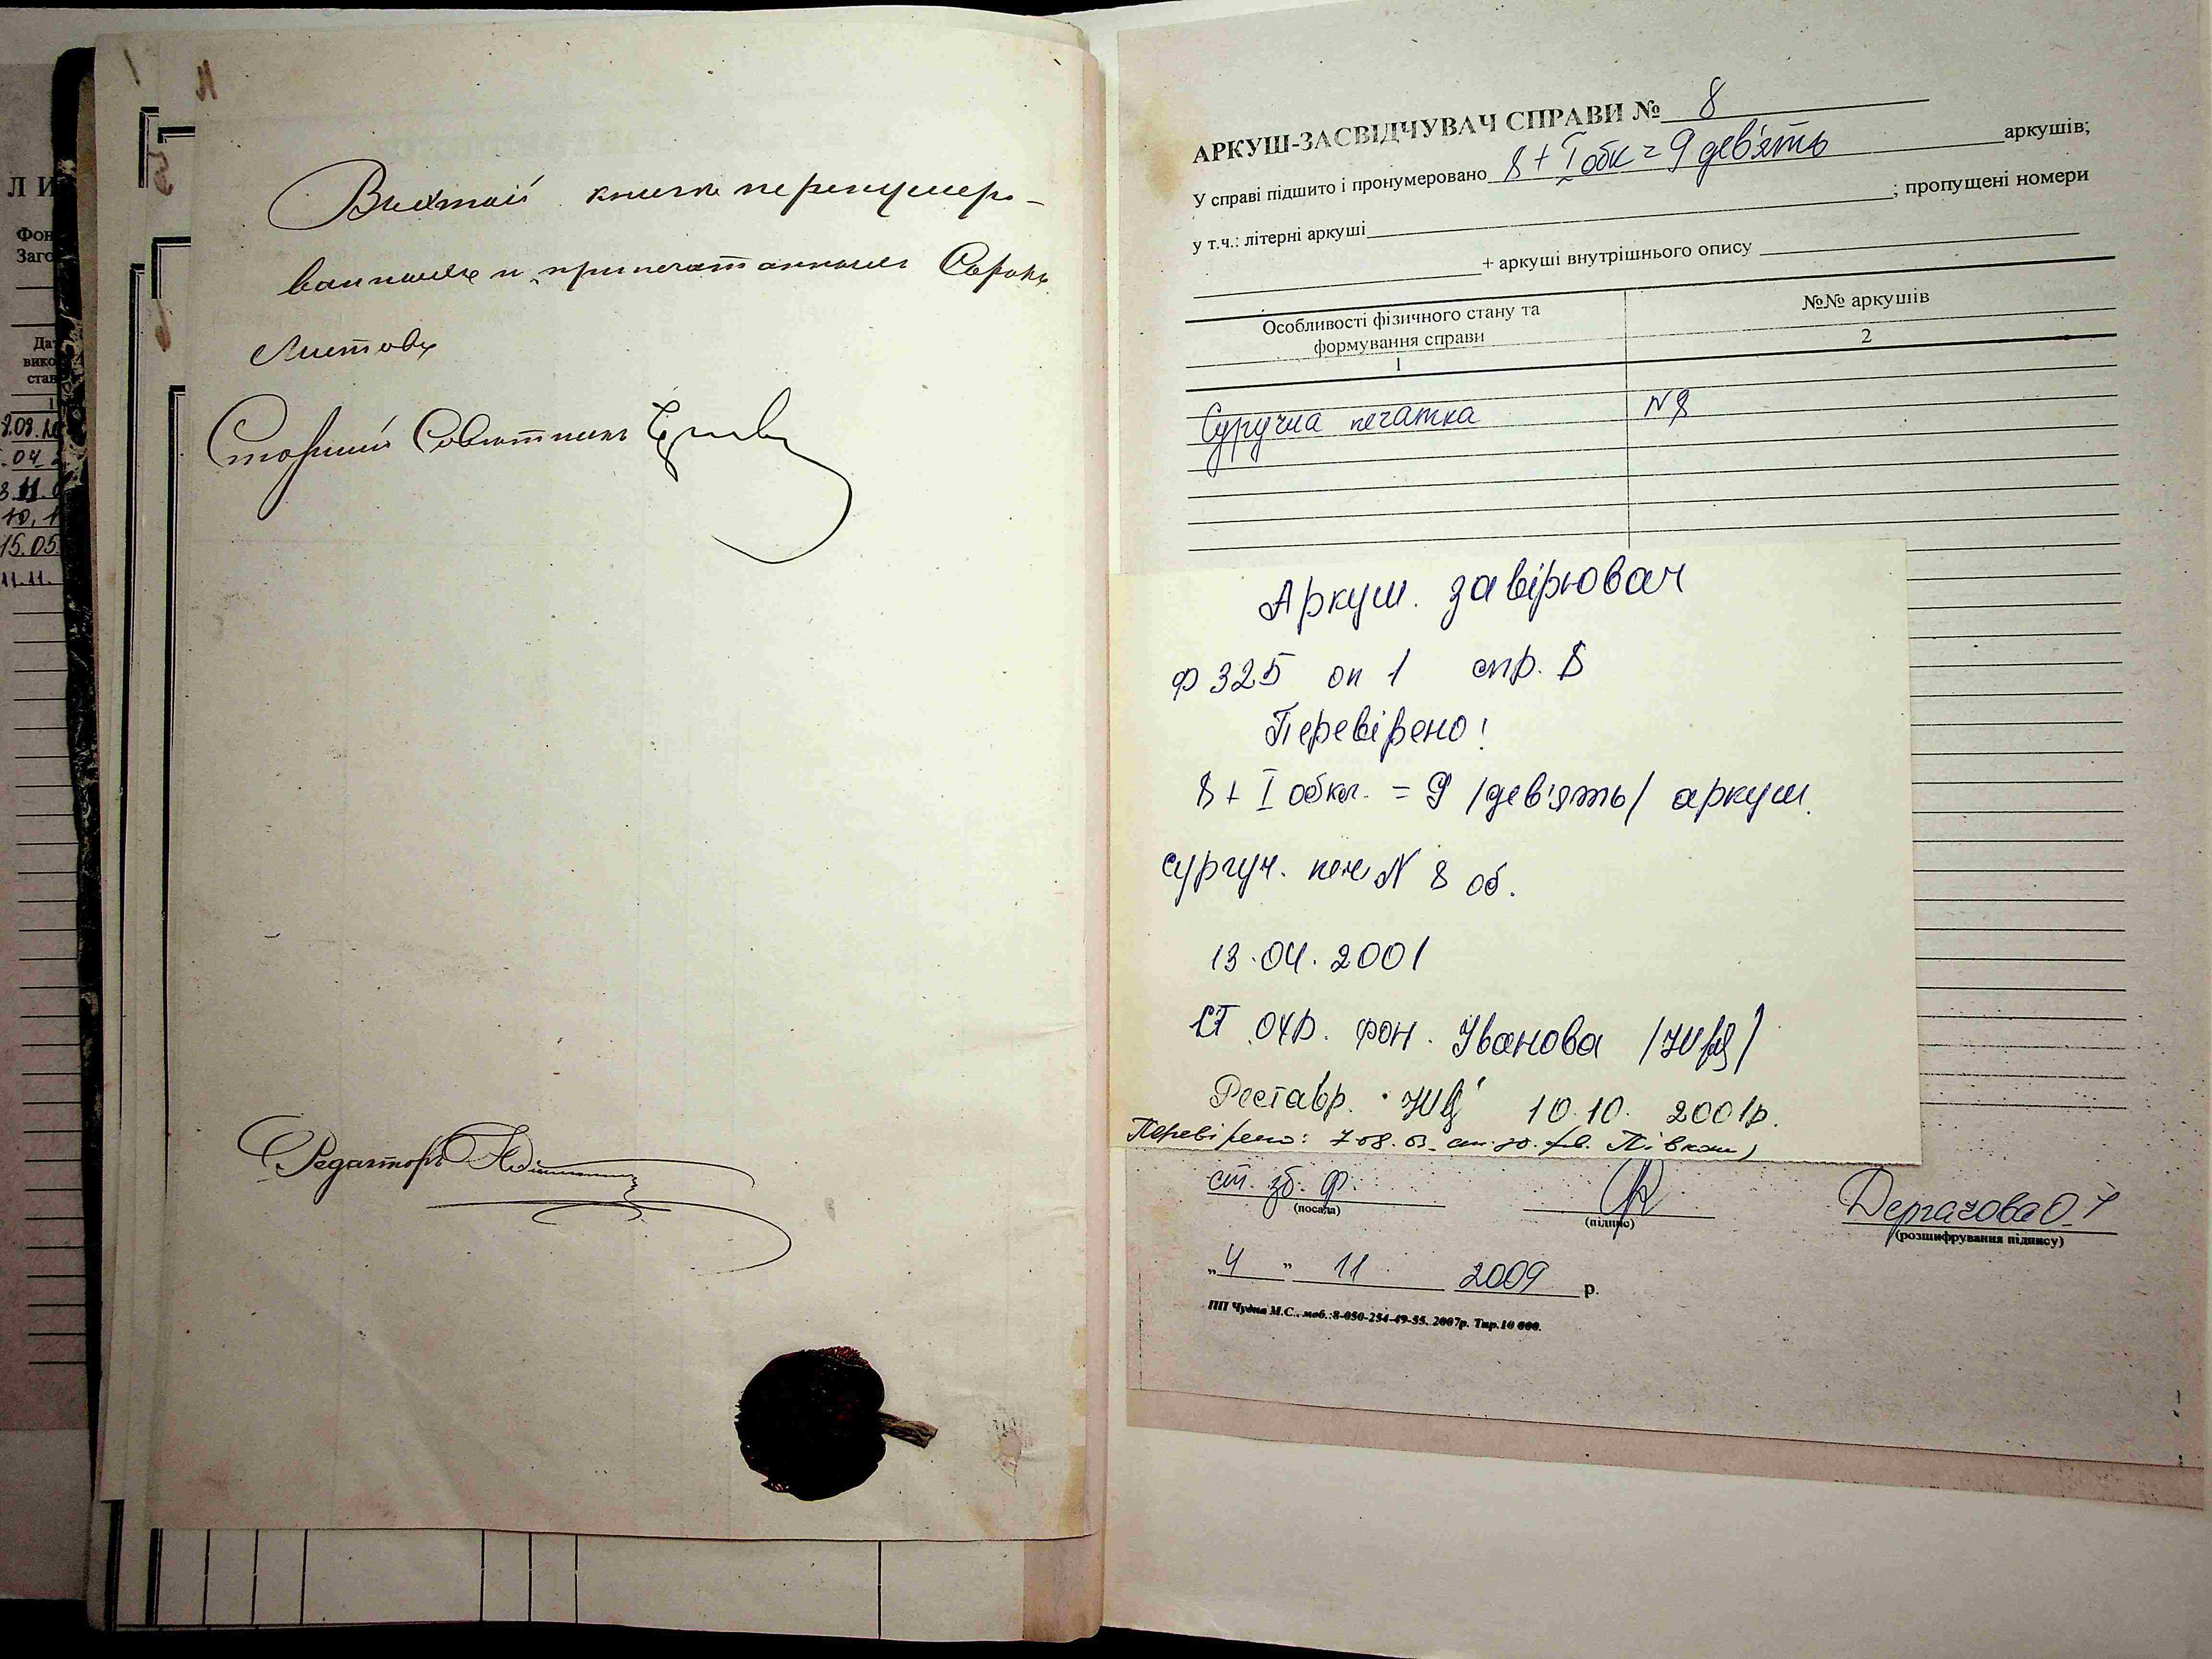 ЛИ
Фон
Заго
Да
вико
стан
1
15.05.
11.11.
5
6
книге перенумеро-
ванныхъ и припечатанныхъ Сорокъ
Листовъ
Старшій Совѣтникъ
Редакторъ
АРКУШ-ЗАСВІДЧУВАЧ СПРАВИ № 8
У справі підшито і пронумеровано 8 + I обк = 9 дев'ять аркушів;
у т.ч.: літерні аркуші ; пропущені номери
+ аркуші внутрішнього опису
Особливості фізичного стану та формування справи
№№ аркушів
1
2
Сургучна печатка
N 8
Аркуш. завірювач
ф 325 оп 1 спр. 8
Перевірено!
8 + I обкл. = 9 /дев'ять/ аркуш.
сургуч. печ N 8 об.
13.04.2001
СТ. ОХР. фон. Іванова
Реставр. 10.10. 2001р.
Перевірено:
ст. зб. ф.
(посада)
(підпис)
Дергачова О.
(розшифрування підпису)
„4" 11 2009 р.
ПП Чудна М.С., моб.:8-050-254-49-55, 2007р. Тир.10 000.